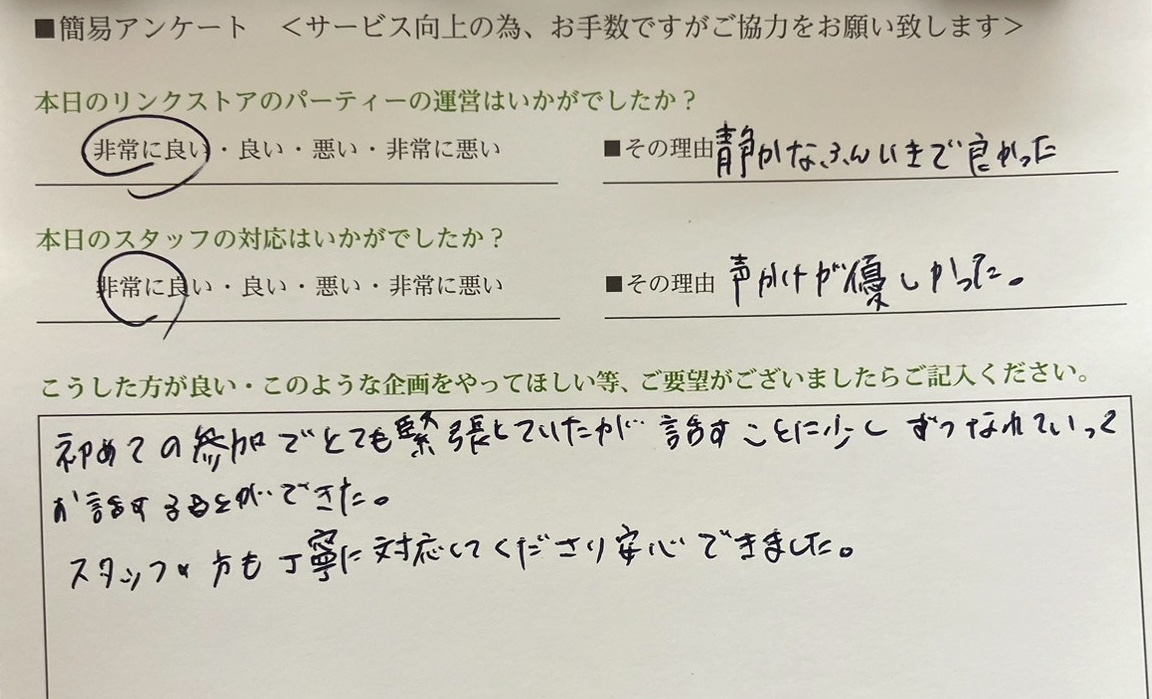 ■簡易アンケート　＜サービス向上の為、お手数ですがご協力をお願い致します＞
本日のリンクストアのパーティーの運営はいかがでしたか？
非常に良い・良い・悪い・非常に悪い　■その理由 静かなふんいきで良かった
本日のスタッフの対応はいかがでしたか？
非常に良い・良い・悪い・非常に悪い　■その理由 声かけが優しかった。
こうした方が良い・このような企画をやってほしい等、ご要望がございましたらご記入ください。
初めての参加でとても緊張していたが 話すことに少しずつなれていって
お話することができた。
スタッフの方も丁寧に対応してくださり安心できました。